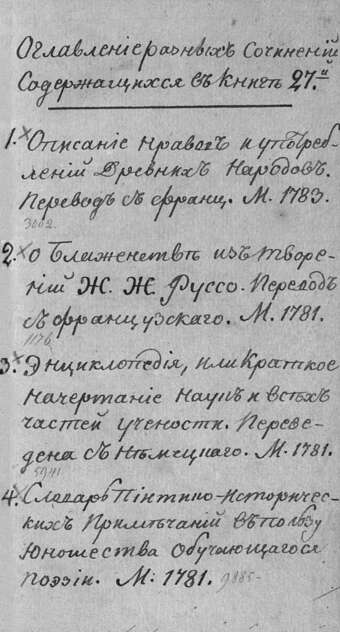 Оглавленіе разныхъ Сочиненій
Содержащихся въ Книгѣ 27.й
1. Описаніе нравовъ и употреб-
леній Древнихъ Народовъ.
Переводъ съ франц. М. 1783.
3002.
2. О Блаженствѣ изъ творе-
ній Ж. Ж. Руссо. Переводъ
съ французскаго. М. 1781.
1176.
3. Энциклопедія, или Краткое
начертаніе Наукъ и всѣхъ
частей учености. Переве-
дена съ Нѣмецкаго. М. 1781.
5941
4. Словарь Піитико-историчес-
кихъ Примѣчаній въ пользу
Юношества Обучающагося
поэзіи. М: 1781. 9885-